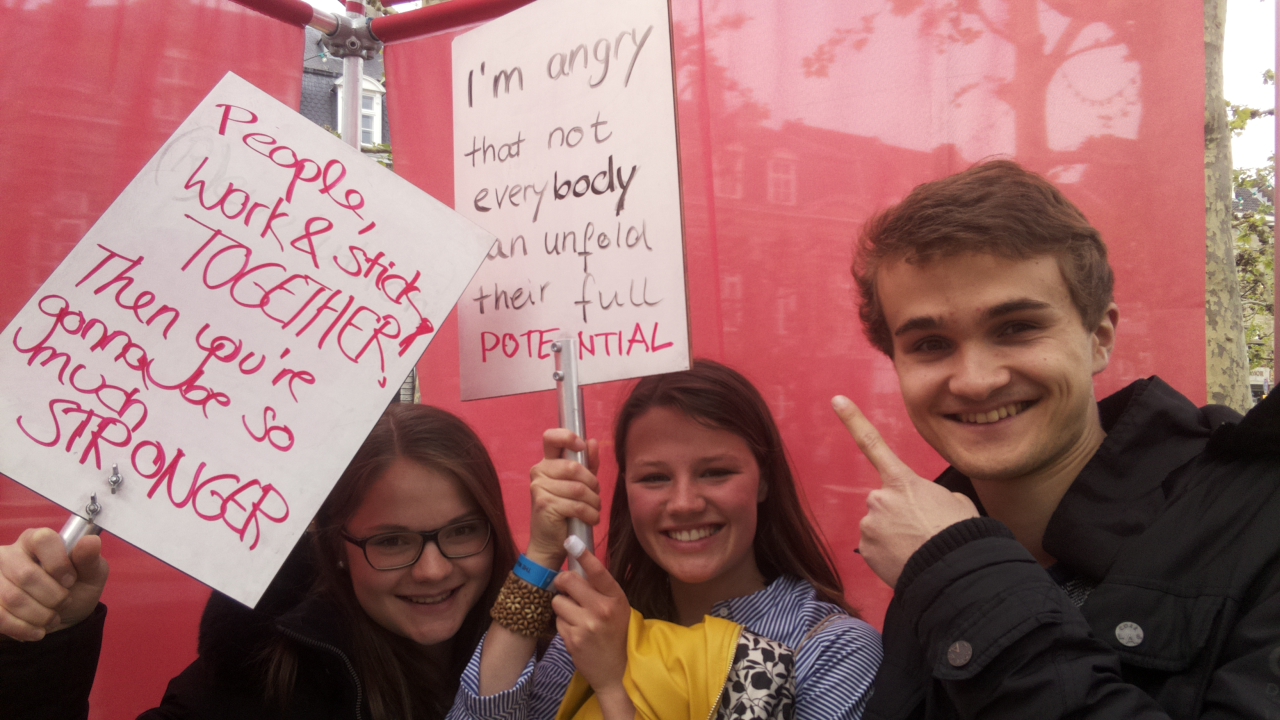 People,
work & stick
TOGETHER!
Then you're
gonna be so
much
STRONGER
I'm angry
that not
everybody
an unfold
their full
POTENTIAL